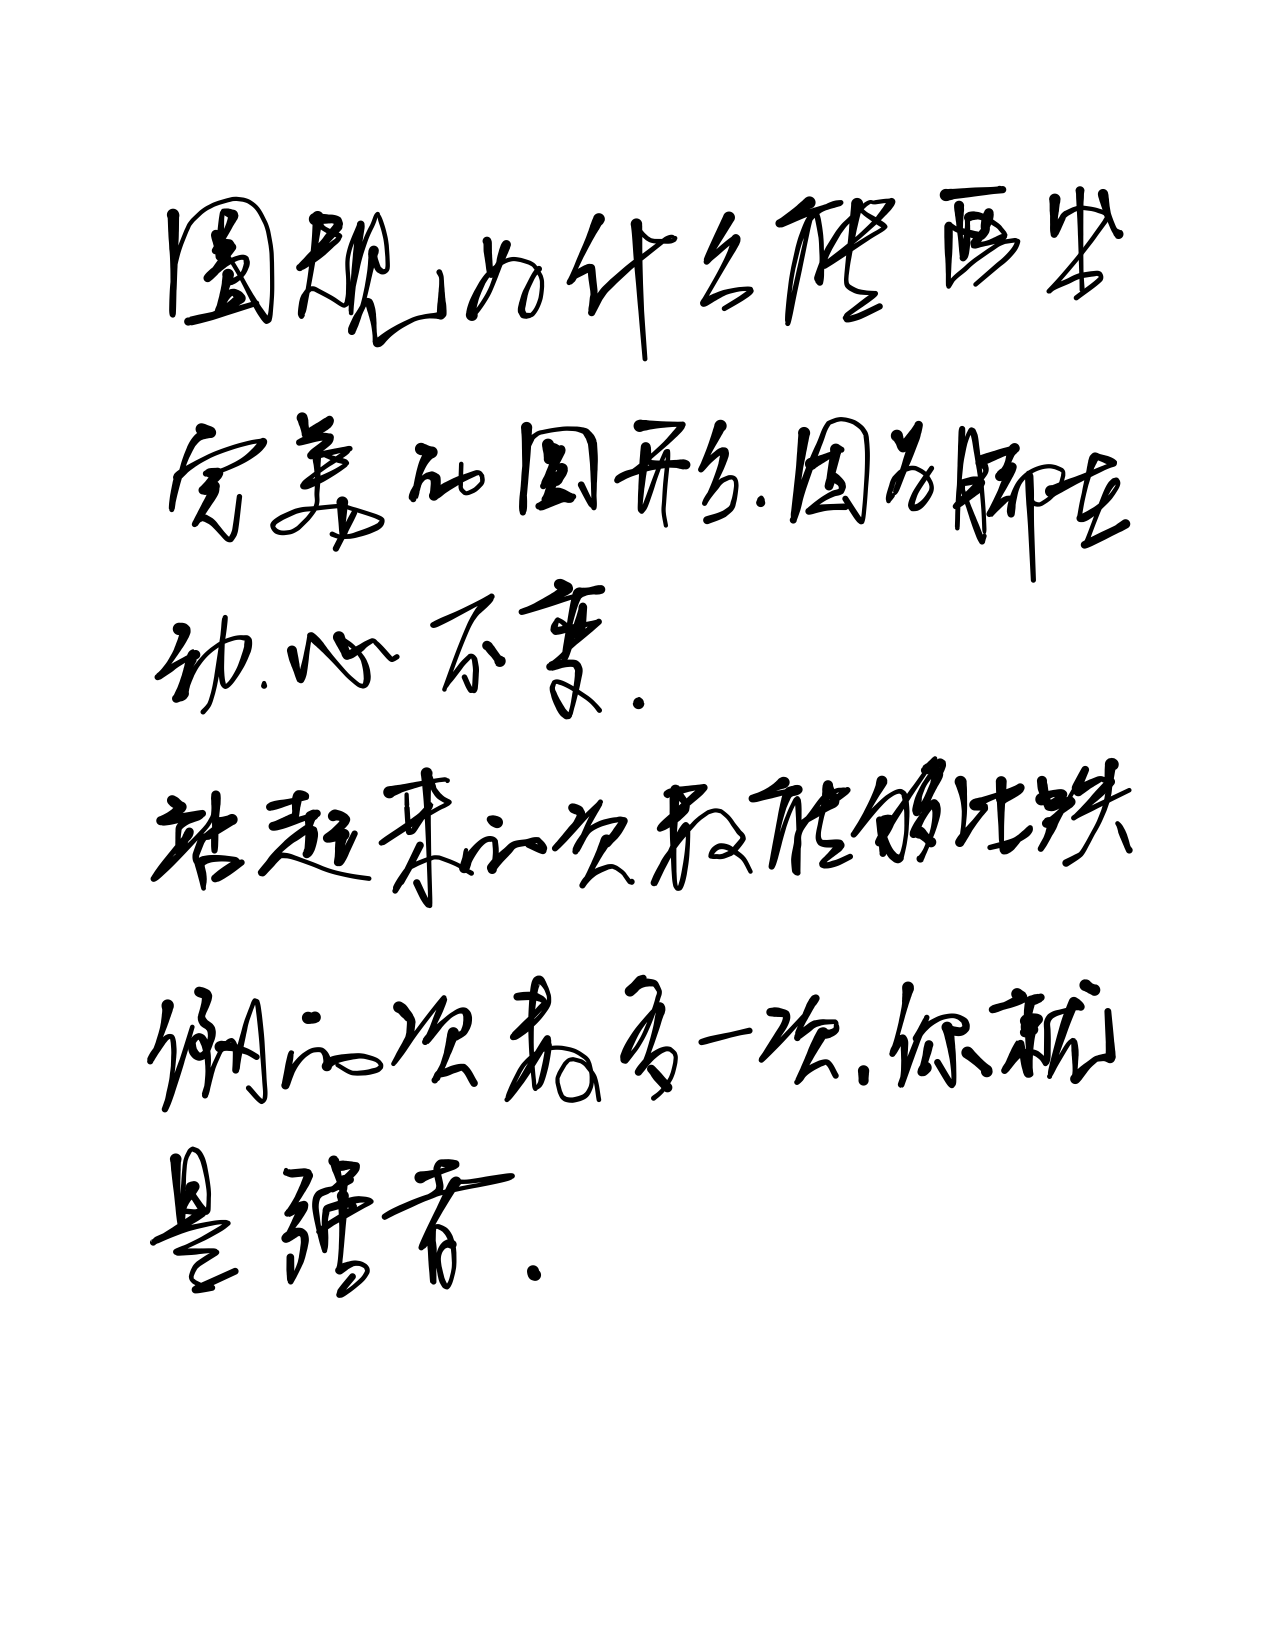 圆规为什么能画出
完美的圆形.因为脚在
动.心不变.
站起来的次数能够比跌
倒的次数多一次.你就
是强者.